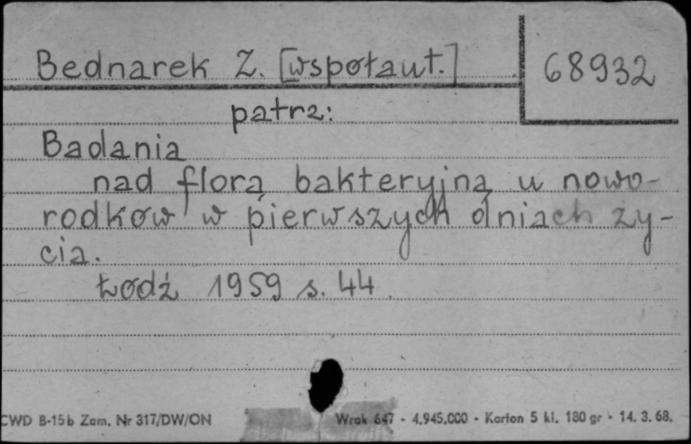 Bednarek Z. [wspołaut.] 68932
patrz:
Badania
nad florą bakteryjną u nowo-
rodków w pierwszych dniach ży-
cia.
Łódź 1959 s. 44.
CWD B-15b Zam. Nr 317/DW/ON Wrak 647 - 4.945.000 - Karton 5 kl. 180 gr - 14. 3. 68.